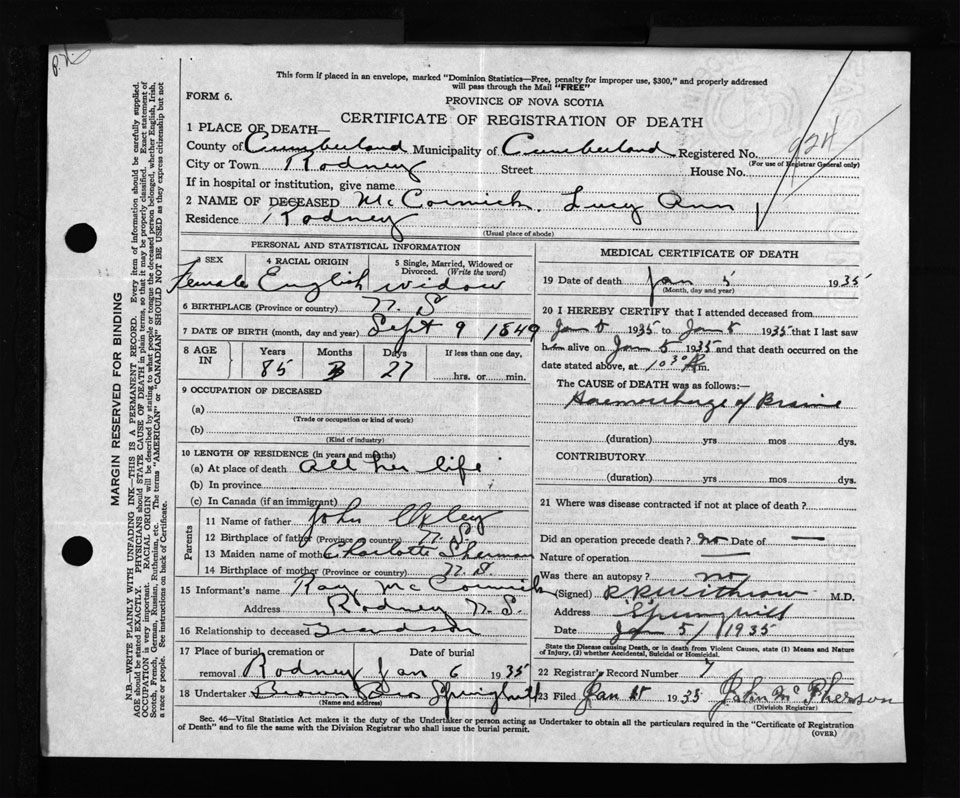 This form if placed in an envelope, marked "Dominion Statistics—Free, penalty for improper use, $300," and properly addressed
will pass through the Mail "FREE"
FORM 6.
PROVINCE OF NOVA SCOTIA
CERTIFICATE OF REGISTRATION OF DEATH
1 PLACE OF DEATH—
County of Cumberland Municipality of Cumberland Registered No. 924
(For use of Registrar General only)
City or Town Rodney Street House No.
If in hospital or institution, give name
2 NAME OF DECEASED McCormick, Lucy Ann
Residence Rodney
(Usual place of abode)
PERSONAL AND STATISTICAL INFORMATION
3 SEX 4 RACIAL ORIGIN 5 Single, Married, Widowed or Divorced. (Write the word)
Female English widow
6 BIRTHPLACE (Province or country) N. S
7 DATE OF BIRTH (month, day and year) Sept 9 1849
8 AGE IN Years Months Days If less than one day,
85 3 27 hrs. or min.
9 OCCUPATION OF DECEASED
(a)
(Trade or occupation or kind of work)
(b)
(Kind of industry)
10 LENGTH OF RESIDENCE (in years and months)
(a) At place of death all her life
(b) In province
(c) In Canada (if an immigrant)
Parents
11 Name of father John Oxley
12 Birthplace of father (Province or country) N. S.
13 Maiden name of mother Charlotte Sherman
14 Birthplace of mother (Province or country) N. S.
15 Informant's name Ray McCormick
Address Rodney N. S.
16 Relationship to deceased Grandson
17 Place of burial, cremation or removal Date of burial
Rodney Jan 6 1935
18 Undertaker Brown Bros Springhill
(Name and address)
MEDICAL CERTIFICATE OF DEATH
19 Date of death Jan 5 1935
(Month, day and year)
20 I HEREBY CERTIFY that I attended deceased from
Jan 5 1935 to Jan 5 1935 that I last saw
h alive on Jan 5 1935 and that death occurred on the
date stated above, at 10 30 m.
The CAUSE OF DEATH was as follows:—
Haemorrhage of Braine
(duration) yrs mos dys.
CONTRIBUTORY
(duration) yrs mos dys.
21 Where was disease contracted if not at place of death?
Did an operation precede death? no Date of —
Nature of operation —
Was there an autopsy? no
(Signed) Withrow M.D.
Address Springhill
Date Jan 5/1935
State the Disease causing Death, or in death from Violent Causes, state (1) Means and Nature
of Injury, (2) whether Accidental, Suicidal or Homicidal.
22 Registrar's Record Number 7
23 Filed Jan 1935 John McPherson
(Division Registrar)
Sec. 46—Vital Statistics Act makes it the duty of the Undertaker or person acting as Undertaker to obtain all the particulars required in the "Certificate of Registration
of Death" and to file the same with the Division Registrar who shall issue the burial permit.
(OVER)
MARGIN RESERVED FOR BINDING
N.B.—WRITE PLAINLY WITH UNFADING INK—THIS IS A PERMANENT RECORD. Every item of information should be carefully supplied.
AGE should be stated EXACTLY. PHYSICIANS should STATE CAUSE OF DEATH in plain terms, so that it may be properly classified. Exact statement of
OCCUPATION is very important. RACIAL ORIGIN will be described by stating to what people or tongue the deceased person belonged, whether English, Irish,
Scotch, French, German, Russian, Ruthenian, etc. The terms "AMERICAN" or "CANADIAN" SHOULD NOT BE USED as they express citizenship but not
a race or people. See instructions on back of Certificate.